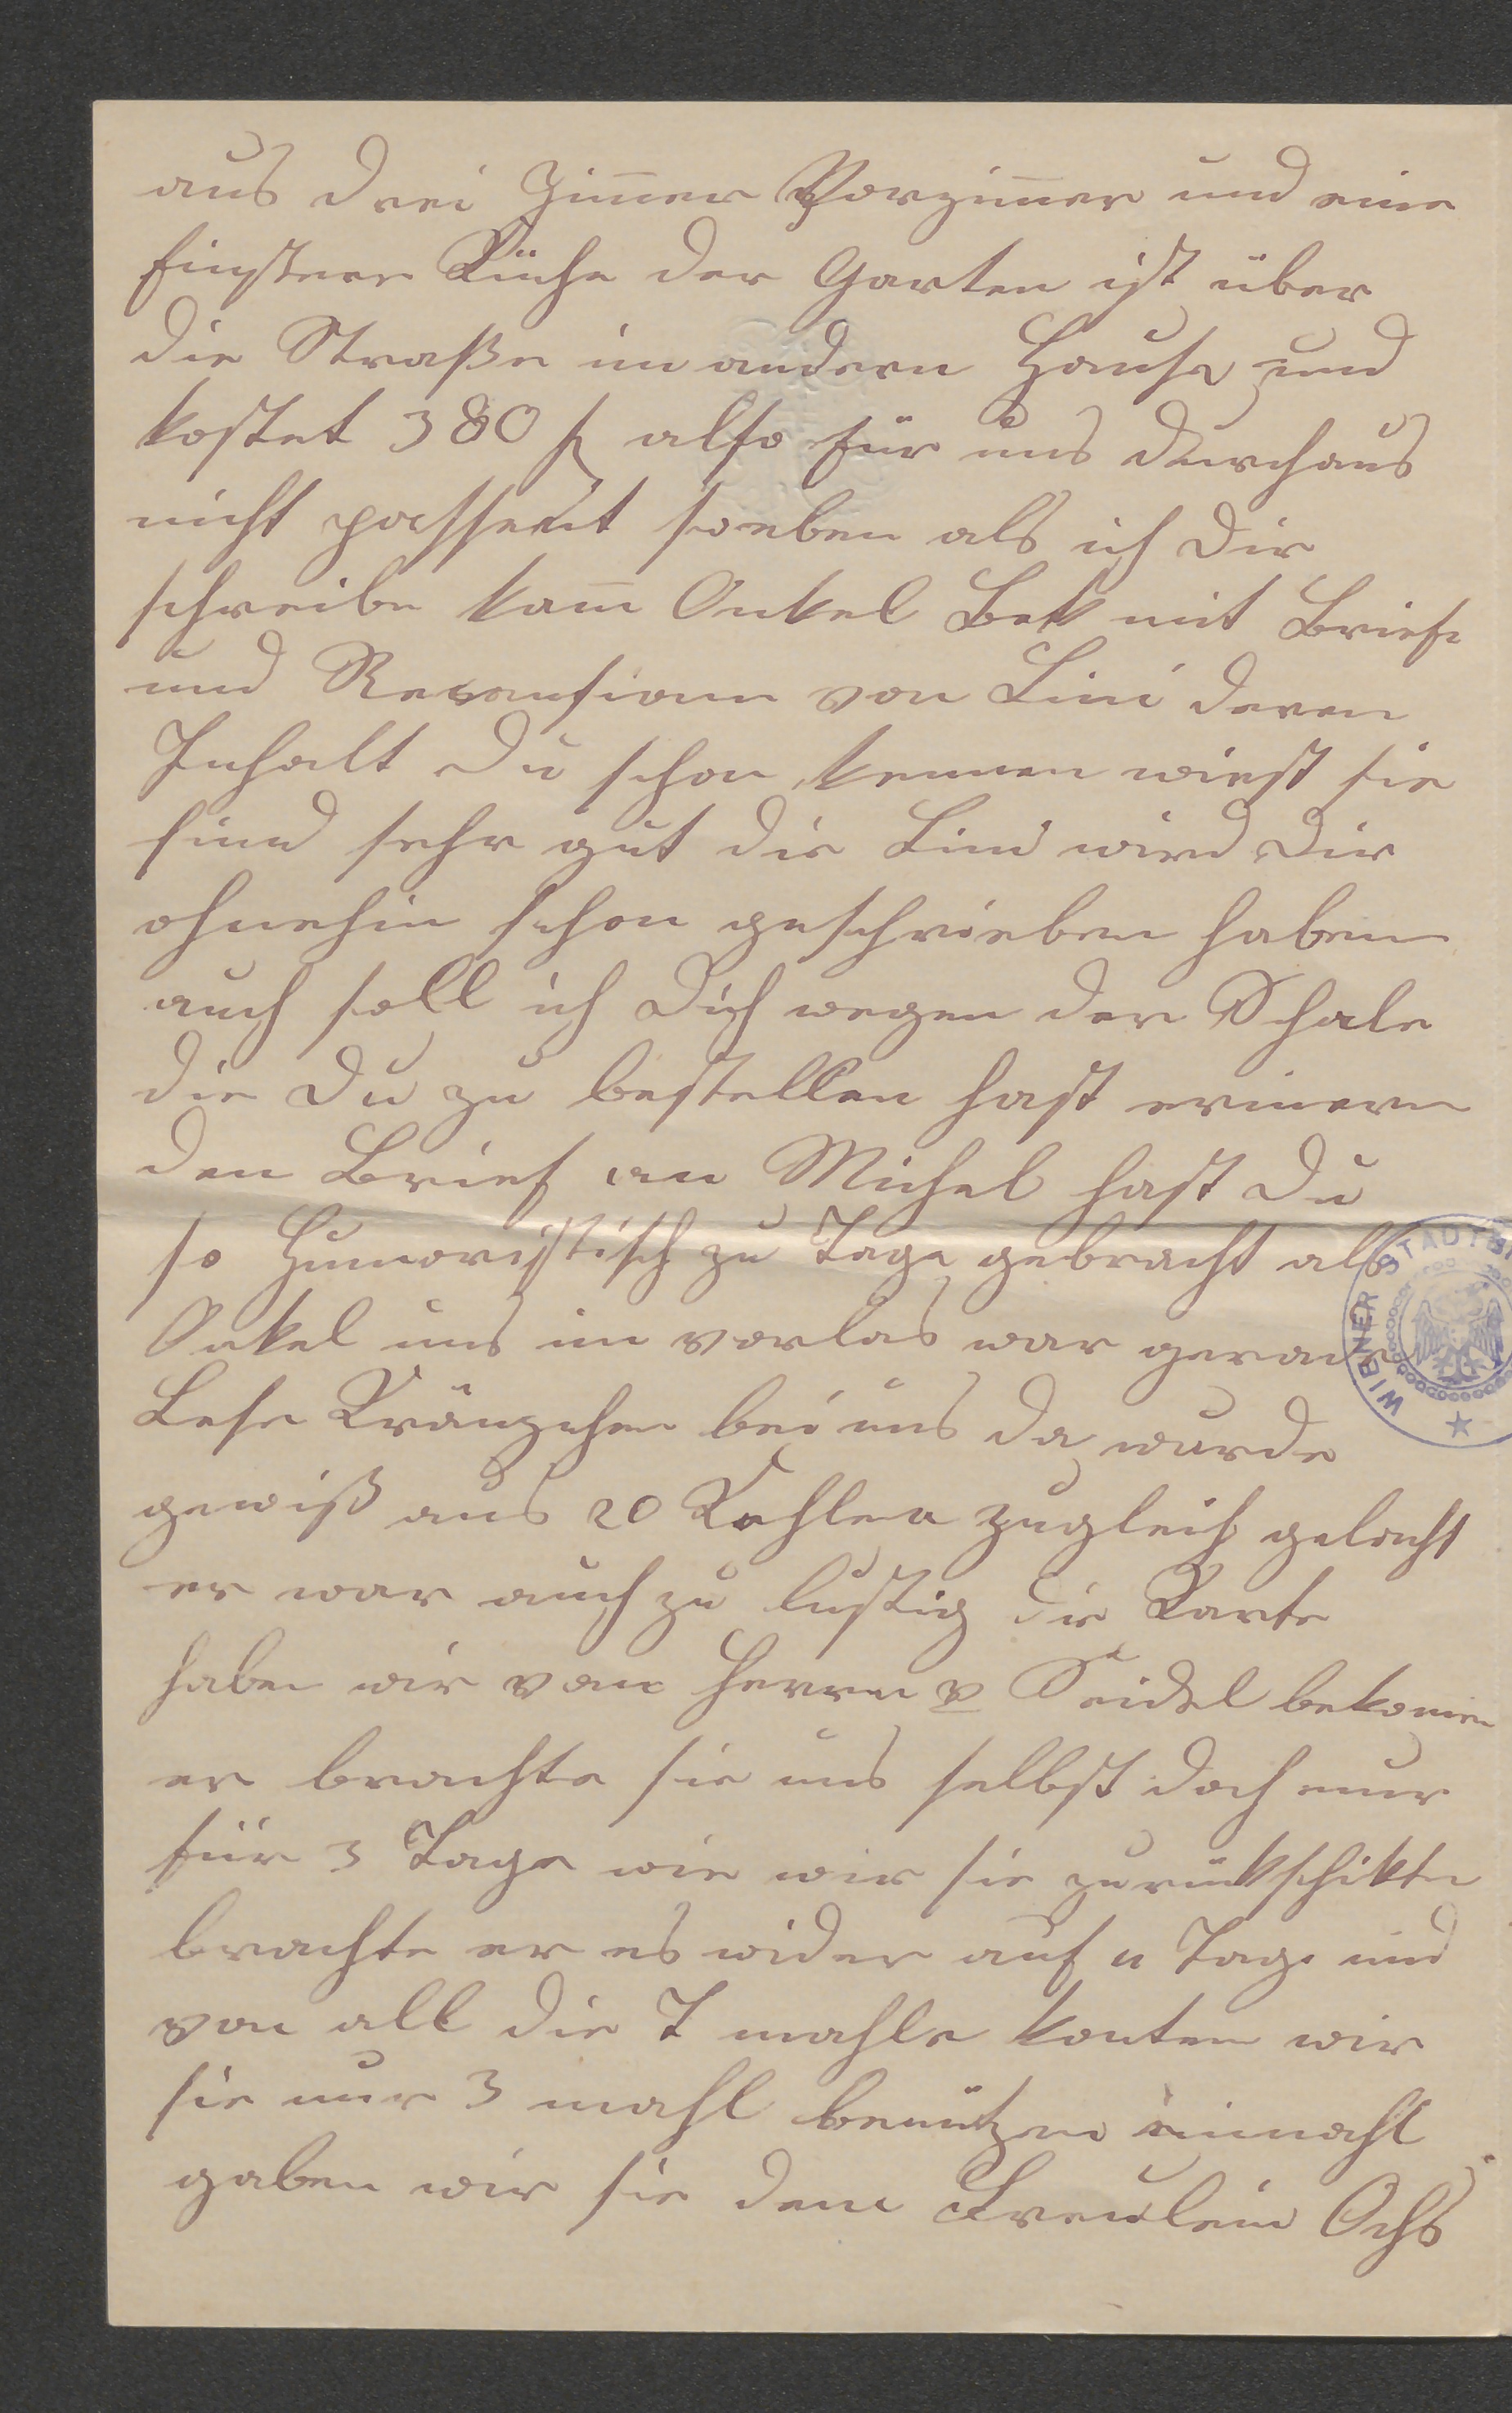 aus drei Zim̅er Vorzim̅er und eine
finstere Küche der Garten ist über
die Straße im andern Hause und
kostet 380 f also für uns durchaus
nicht passent soeben als ich Dir
schreibe kam̅ Onkel Bek mit Briefe
und Recensionen von Lini deren
Inhalt Du schon kennen wirst sie
sind sehr gut die Lini wird Dir
ohnehin schon geschrieben haben
auch soll ich Dich wegen der Schale
die Du zu bestellen hast erinern
den Brief an Michel hast Du
so Humoristisch zu Tage gebracht als
Onkel uns im vorlas war gerade
Lese Kränzchen bei uns da wurde
gewiß aus 20 Kehlen zugleich gelacht
er war auch zu lustig die Karte
haben wir von Herrn v Seidel bekomen
er brachte sie uns selbst doch nur
für 3 Tage wie wir sie zurükschikten
brachte er es wider auf 11 Tage und
von all die mahle konten wir
sie nur 3 mahl benützen einmahl
gaben wir sie dem Freulein Ochs
WIENER STADTBI